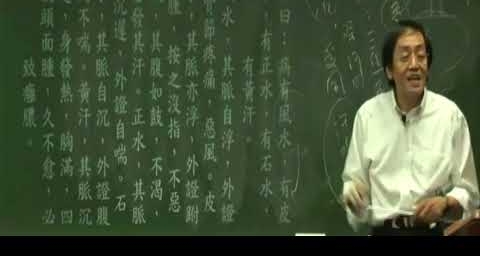 曰:病有風水,有皮
有正水,有石水,
有黃汗。
水,其脈自浮,外證
骨節疼痛,惡風。皮
其脈亦浮,外證跗
腫,按之沒指,不惡
其腹如鼓,不渴,
發其汗。正水,其脈
沉遲,外證自喘。石
其脈自沉,外證腹
不喘。黃汗,其脈沉
身發熱,胸滿,四
頭面腫,久不愈,必
致癰膿。